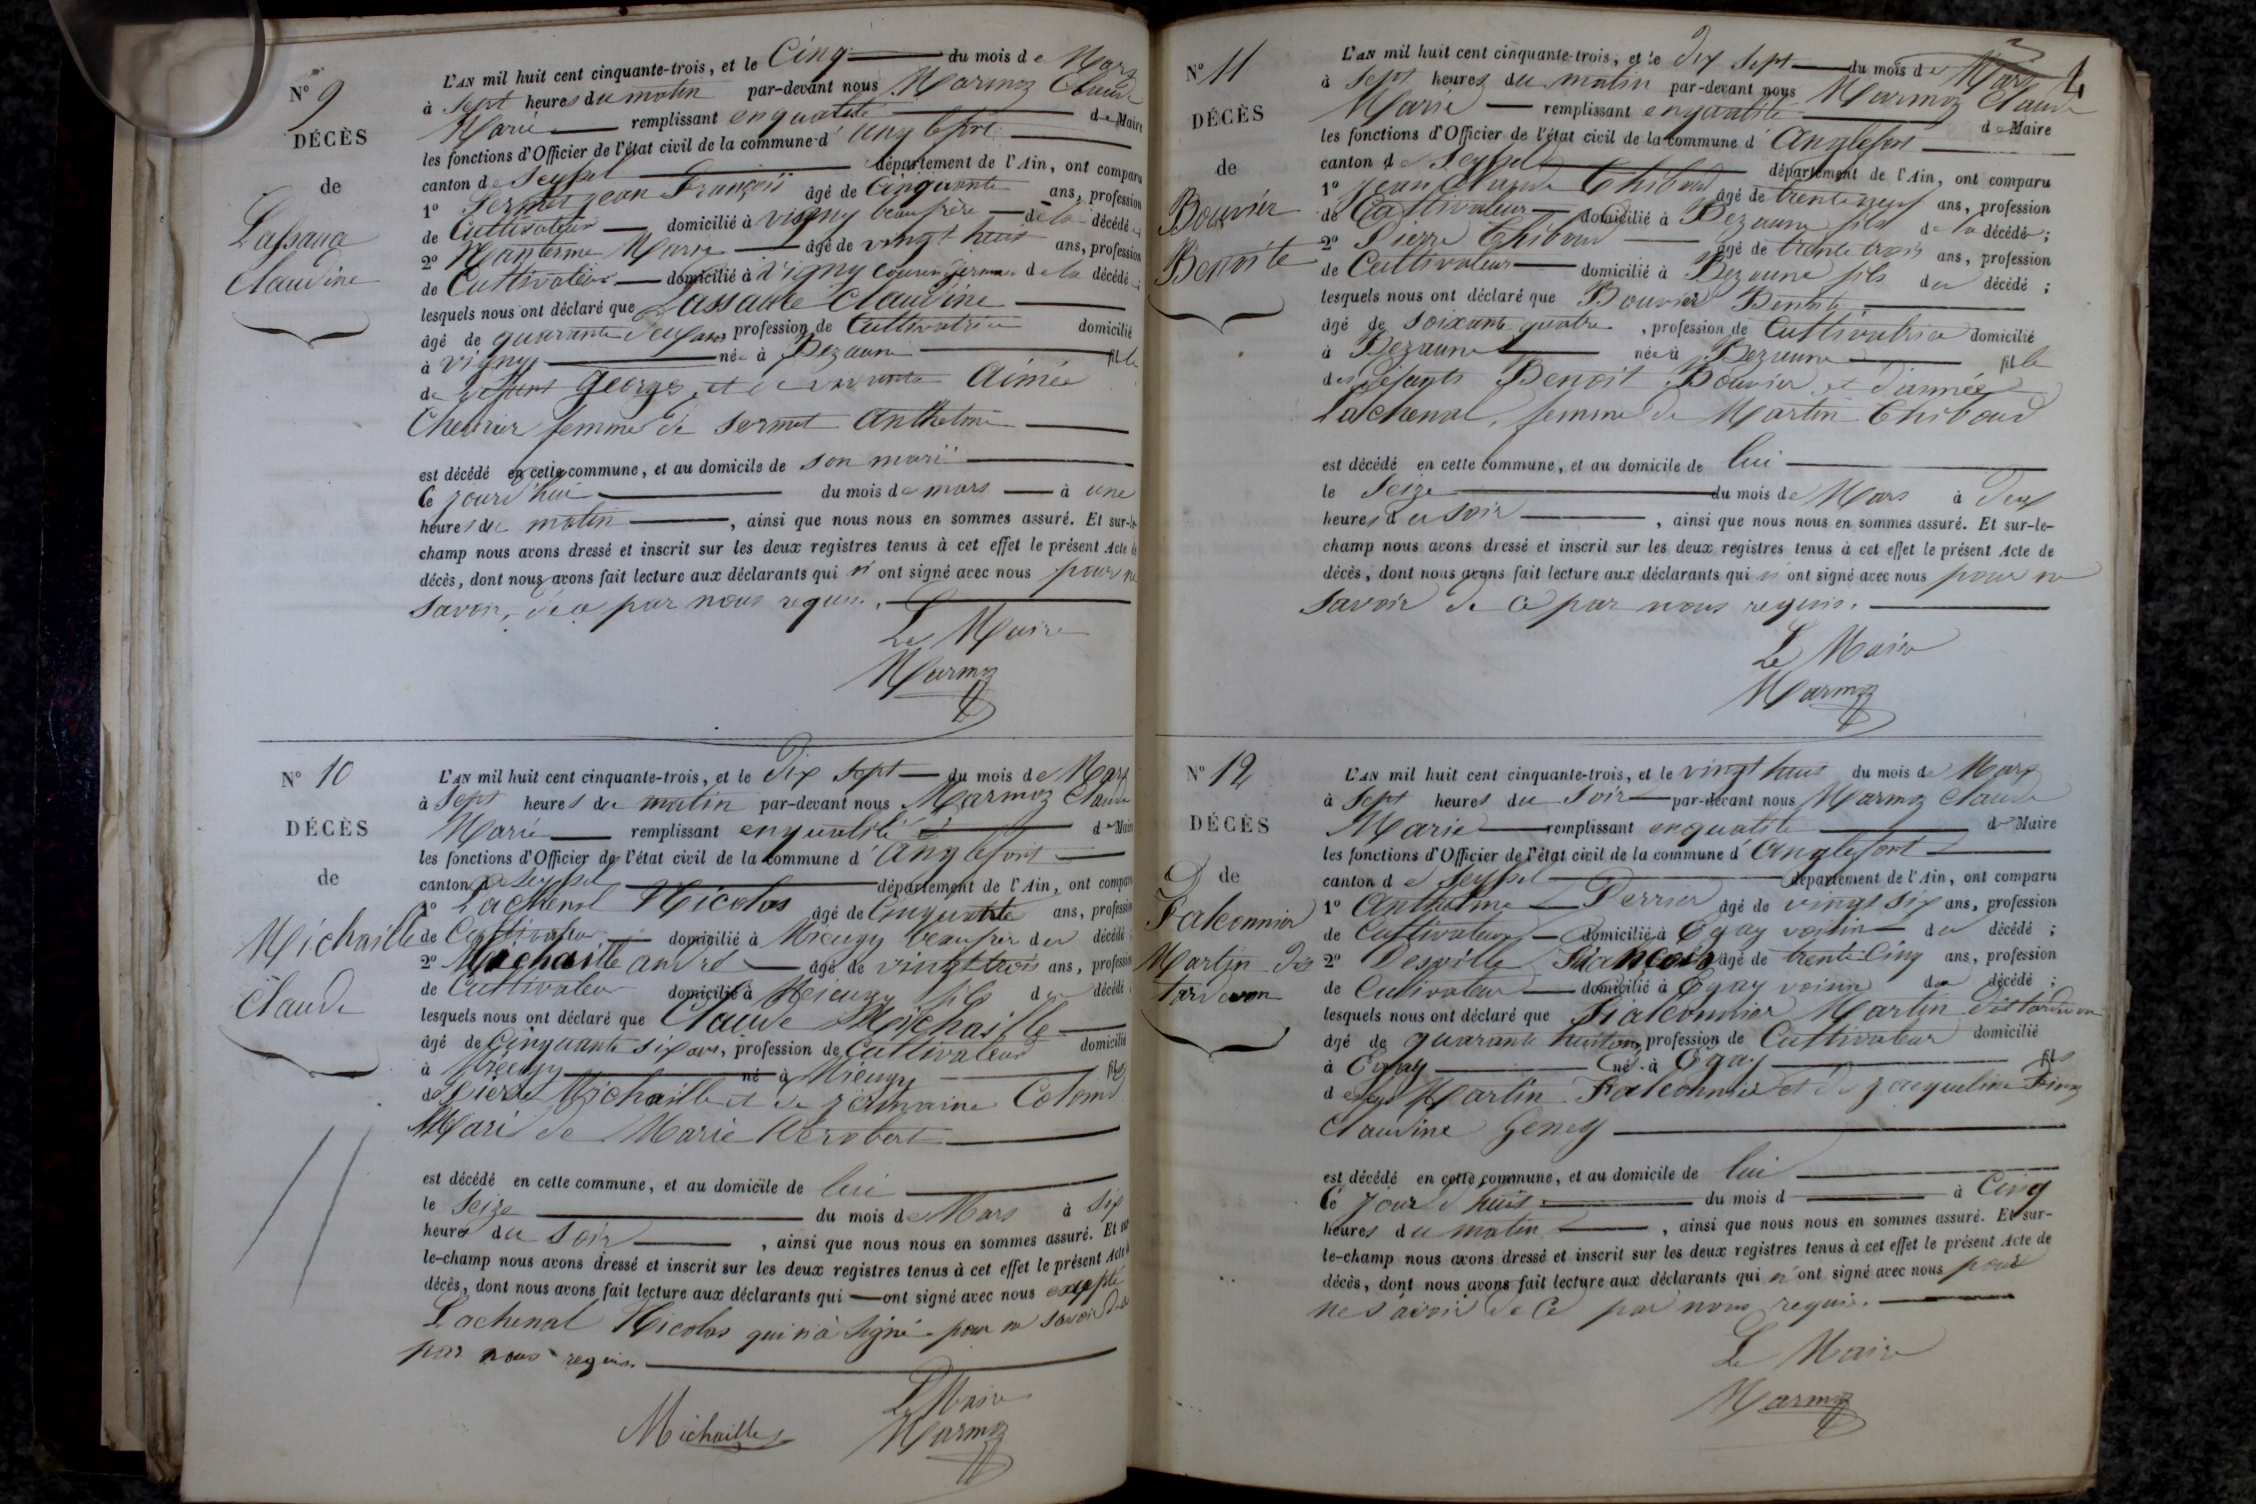 N° 9
DÉCÈS
de
Lassauce
Claudine
L'AN mil huit cent cinquante-trois, et le Cinq du mois de Mars
à Sept heures du matin par-devant nous Marmoz Claude
Marie remplissant en qualité de Maire
les fonctions d'Officier de l'état civil de la commune d' Anglefort
canton de Seyssel département de l'Ain, ont comparu
1° Sermet jean François âgé de Cinquante ans, profession
de Cultivateur domicilié à Vigny beaufrère de la décédée ;
2° Marie âgé de vingt huit ans, profession
de Cultivateur domicilié à Vigny cousin germain de la décédée ;
lesquels nous ont déclaré que Lassauce Claudine
âgé de quarante deux ans profession de Cultivatrice domicilié
à Vigny née à Bezaune fille
de défunt Georges, et de vivante Aimée
Chevrier femme de Sermet Anthelme
est décédé en cette commune, et au domicile de son mari
Ce jourd'hui du mois de mars à une
heures du matin , ainsi que nous nous en sommes assuré. Et sur-le-
champ nous avons dressé et inscrit sur les deux registres tenus à cet effet le présent Acte de
décès, dont nous avons fait lecture aux déclarants qui n' ont signé avec nous pour ne
Savoir, de ce par nous requis.
Le Maire
Marmoz
N° 10
DÉCÈS
de
Michaille
Claude
L'AN mil huit cent cinquante-trois, et le Dix Sept du mois de Mars
à Sept heures du matin par-devant nous Marmoz Claude
Marie remplissant en qualité de Maire
les fonctions d'Officier de l'état civil de la commune d' Anglefort
canton de Seyssel département de l'Ain, ont comparu
1° Lachenal Nicolas âgé de Cinquante ans, profession
de Cultivateur domicilié à Mieugy beaufrer du décédé
2° Michaille andré âgé de vingt trois ans, profession
de Cultivateur domicilié à Mieugy fils du décédé
lesquels nous ont déclaré que Claude Michaille
âgé de Cinquante six ans, profession de Cultivateur domicilié
à Mieugy né à Mieugy fils
de Pierre Michaille et de jermaine Colomb
Mari de Marie Nerobert
est décédé en cette commune, et au domicile de lui
le Seize du mois de Mars à Six
heures du Soir , ainsi que nous nous en sommes assuré. Et sur-
le-champ nous avons dressé et inscrit sur les deux registres tenus à cet effet le présent Acte de
décès, dont nous avons fait lecture aux déclarants qui ont signé avec nous excepté
Lachenal Nicolas qui n'a Signé pour ne Savoir de
par nous requis.
Le Maire
Michaille Marmoz
4
N° 11
DÉCÈS
de
Bouvier
Benoite
L'AN mil huit cent cinquante-trois, et le Dix Sept du mois de Mars
à Sept heures du matin par-devant nous Marmoz Claude
Marie remplissant en qualité de Maire
les fonctions d'Officier de l'état civil de la commune d' Anglefort
canton de Seyssel département de l'Ain, ont comparu
1° Jean Claude Thiboud âgé de trente neuf ans, profession
de Cultivateur domicilié à Bezaune fils de la décédée ;
2° Pierre Thiboud âgé de trente trois ans, profession
de Cultivateur domicilié à Bezaune fils du décédé ;
lesquels nous ont déclaré que Bouvier Benoite
âgé de Soixante quatre , profession de Cultivatrice domicilié
à Bezaune née à Bezaune fille
des défunts Benoit Bouvier et d'aimée
Lachenal, femme de Martin Thiboud
est décédé en cette commune, et au domicile de lui
le Seize du mois de Mars à deux
heures du soir , ainsi que nous nous en sommes assuré. Et sur-le-
champ nous avons dressé et inscrit sur les deux registres tenus à cet effet le présent Acte de
décès, dont nous avons fait lecture aux déclarants qui n' ont signé avec nous pour ne
Savoir de ce par nous requis.
Le Maire
Marmoz
N° 12
DÉCÈS
de
Falconnier
Martin dis
tardivon
L'AN mil huit cent cinquante-trois, et le vingt huit du mois de Mars
à Sept heures du Soir par-devant nous Marmoz Claude
Marie remplissant en qualité de Maire
les fonctions d'Officier de l'état civil de la commune d' Anglefort
canton de Seyssel département de l'Ain, ont comparu
1° Anthelme Perrier âgé de vingt six ans, profession
de Cultivateur domicilié à Egay voisin du décédé ;
2° François âgé de trente Cinq ans, profession
de Cultivateur domicilié à Egay voisin du décédé ;
lesquels nous ont déclaré que Falconnier Martin dit tardivon
âgé de quarante huit ans profession de Cultivateur domicilié
à Egay né à Egay fils
de feu Martin Falconnier et de jacqueline
Claudine
est décédé en cette commune, et au domicile de lui
Ce jour d'huis du mois d à Cinq
heures du matin , ainsi que nous nous en sommes assuré. Et sur-
le-champ nous avons dressé et inscrit sur les deux registres tenus à cet effet le présent Acte de
décès, dont nous avons fait lecture aux déclarants qui n' ont signé avec nous pour
ne Savoir de Ce par nous requis.
Le Maire
Marmoz